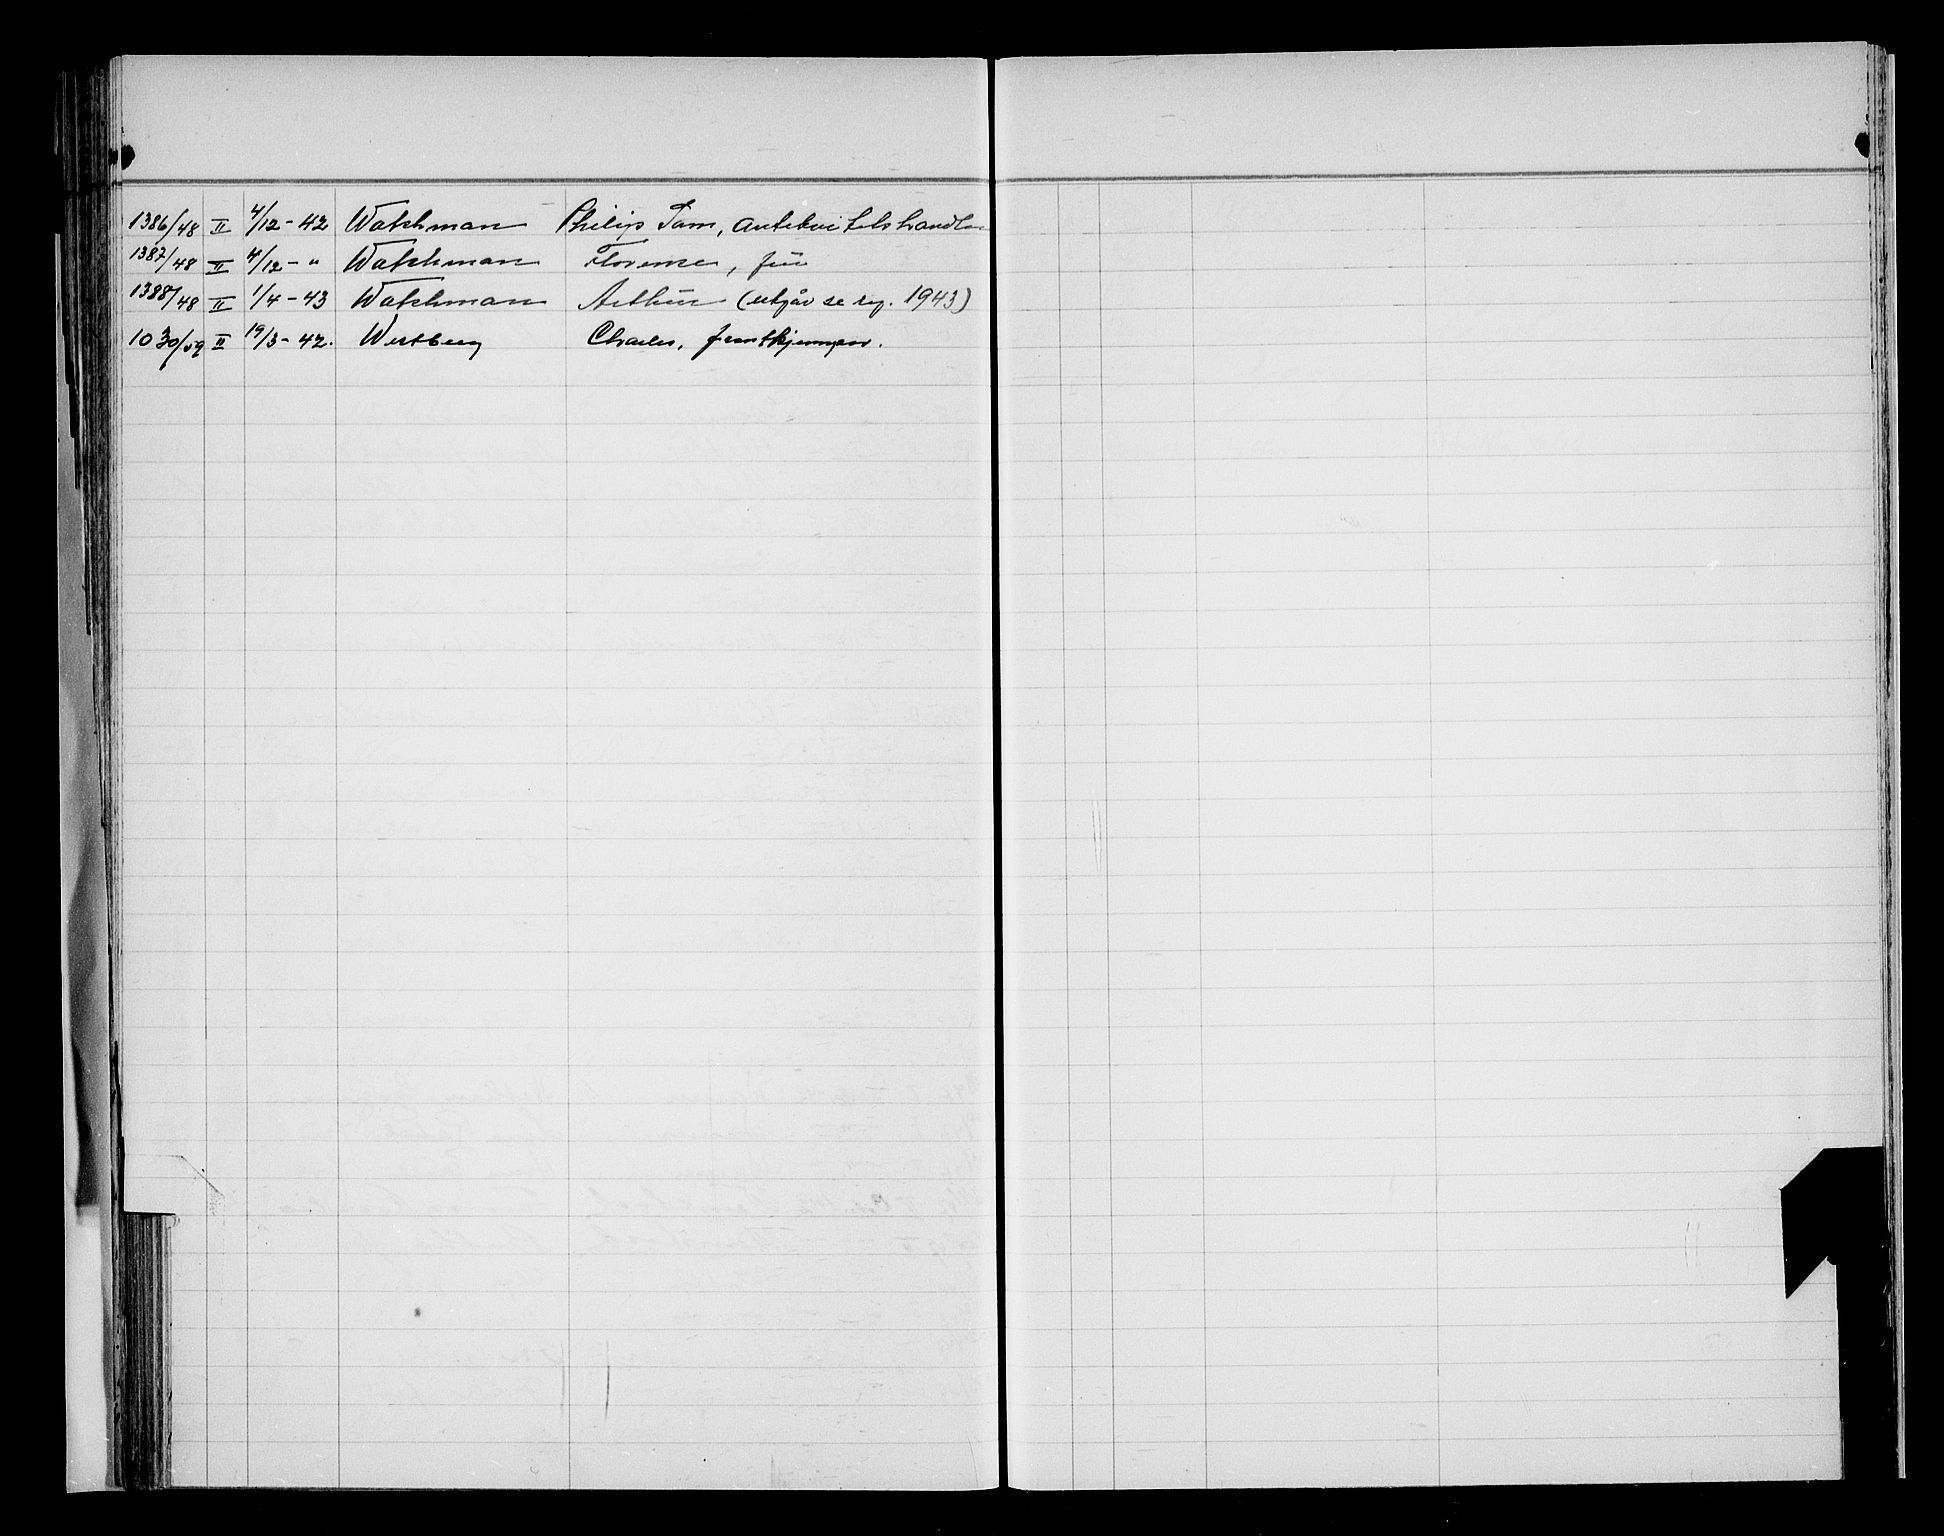 1386/48 II 4/12-42 Watchman Philip Sam, antekvitetshandler
1387/48 II 4/12-" Watchman Florence, frü
1388/48 II 1/4-43 Watchman Arthur (utgår se reg. 1943)
1030/59 II 19/3-42. Westberg Charles,